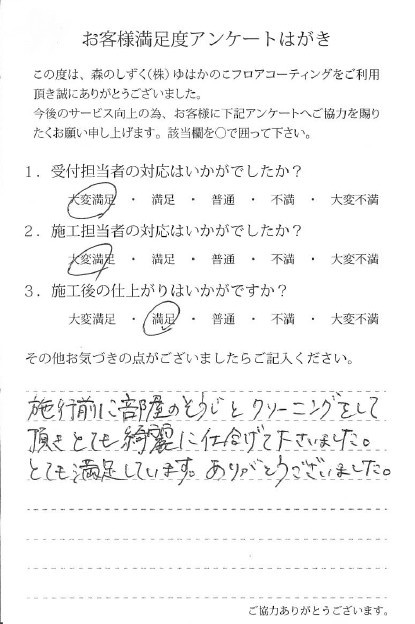 お客様満足度アンケートはがき
この度は、森のしずく(株)ゆはかのこフロアコーティングをご利用
頂き誠にありがとうございました。
今後のサービス向上の為、お客様に下記アンケートへご協力を賜り
たくお願い申し上げます。該当欄を○で囲って下さい。
1．受付担当者の対応はいかがでしたか？
大変満足 ・ 満足 ・ 普通 ・ 不満 ・ 大変不満
2．施工担当者の対応はいかがでしたか？
大変満足 ・ 満足 ・ 普通 ・ 不満 ・ 大変不満
3．施工後の仕上がりはいかがですか？
大変満足 ・ 満足 ・ 普通 ・ 不満 ・ 大変不満
その他お気づきの点がございましたらご記入ください。
施行前に部屋のそうじと クリーニングをして
頂きとても綺麗に仕上げて下さいました。
とても満足しています。ありがとうございました。
ご協力ありがとうございます。